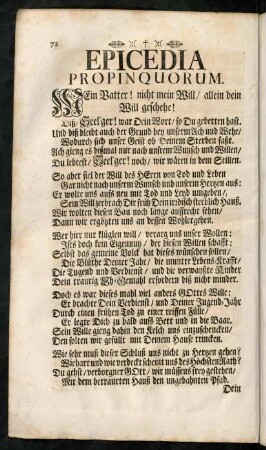 72
EPICEDIA
PROPINQUORUM.
MEin Vatter! nicht mein Will / allein dein
Will geschehe!
Diß / Seel'ger! war Dein Wort / so Du gebetten hast.
Und diß bleibt auch der Grund bey unserm Ach und Wehe /
Wodurch sich unser Geist ob Deinem Sterben faßt.
Ach gieng es dißmal nur nach unserm Wunsch und Willen /
Du lebtest / Seel'ger! noch / wir wären in dem Stillen.
So aber fiel der Will des HErrn von Tod und Leben
Gar nicht nach unserm Wunsch und unserm Hertzen aus:
Er wolte uns aufs neu mit Tod und Leyd umgeben /
Sein Will gebrach Dir früh Dein irdisch sterblich Hauß.
Wir wolten diesen Bau noch lange aufrecht sehen /
Dann wir ergötzten uns an dessen Wohlergehen.
Wer hier nur klüglen will / verarg uns unser Wollen:
Ists doch kein Eigennutz / der diesen Willen schafft:
Selbst das gemeine Volck hat dieses wünschen sollen /
Die Blüthe Deiner Jahr / die muntre Lebens-Krafft /
Die Tugend und Verdienst / und die verwaißte Kinder
Dein traurig Eh-Gemahl erfordern diß nicht minder.
Doch es war dieses mahl viel anders GOttes Wille:
Er brachte Dein Verdienst / und Deiner Jugend-Jahr
Durch einen frühen Tod zu einer reiffen Fülle /
Er legte Dich zu bald aufs Bett und in die Baar.
Sein Wille gieng dahin den Kelch uns einzuschencken /
Den solten wir gefüllt mit Deinem Hause trincken.
Wie sehr muß dieser Schluß uns nicht zu Hertzen gehen?
Wie hart und wie verdeckt scheint uns des Höchsten Rath?
Du gibst / verborgner GOtt / wir müssens frey gestehen /
Mit dem betraurten Hauß den ungebahnten Pfad.
Dein